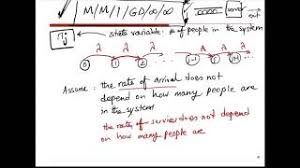 M/M/1/GD/∞/∞
server
exit
πj
state variable: # of people in the system
λ λ λ λ λ
0 1 2 j-1 j
Assume: the rate of arrival does not
depend on how many people are
in the system
the rate of service does not depend
on how many people are